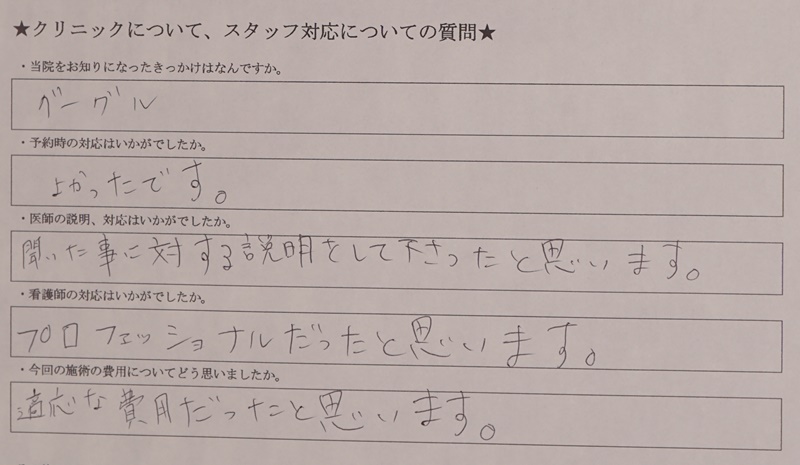 ★クリニックについて、スタッフ対応についての質問★
・当院をお知りになったきっかけはなんですか。
グーグル
・予約時の対応はいかがでしたか。
よかったです。
・医師の説明、対応はいかがでしたか。
聞いた事に対する説明をして下さったと思います。
・看護師の対応はいかがでしたか。
プロフェッショナルだったと思います。
・今回の施術の費用についてどう思いましたか。
適応な費用だったと思います。